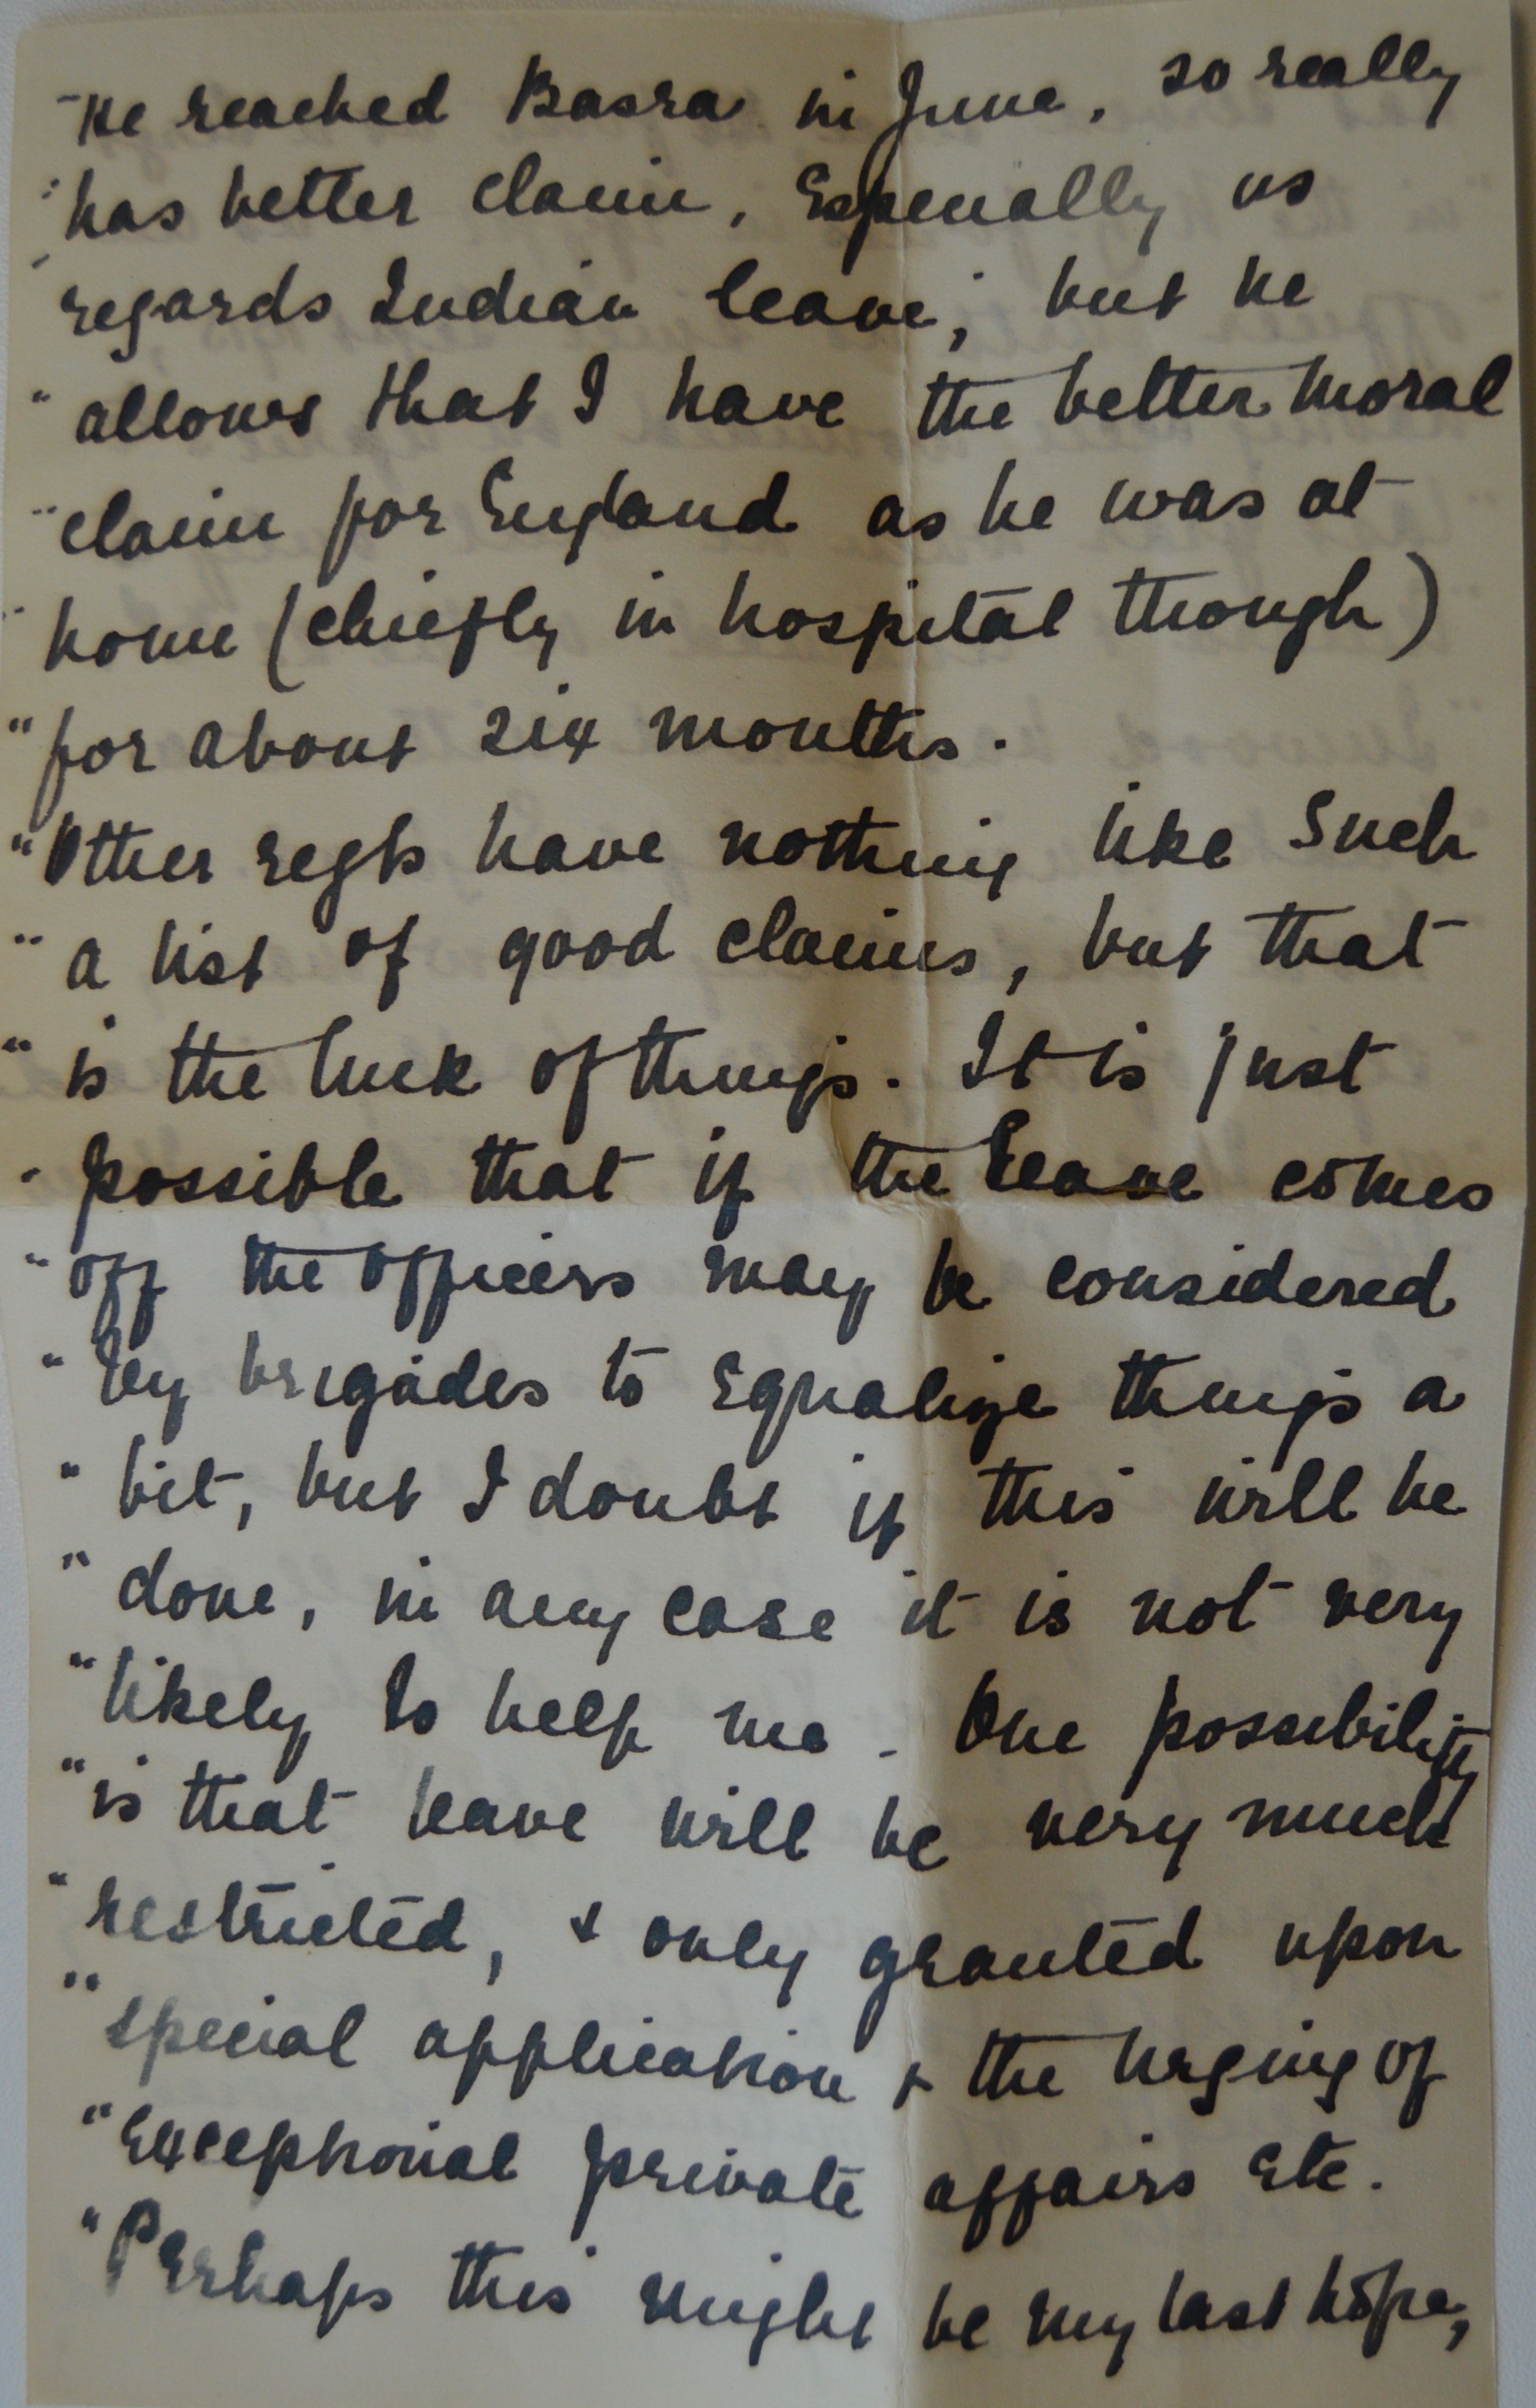 "He reached Basra in June, so really
"has better claim, Especially as
"regards Indian leave, but he
"allows that I have the better moral
"claim for England as he was at
"home (chiefly in hospital though)
"for about six months.
"Other regts have nothing like such
"a list of good claims, but that
"is the luck of things. It is just
"possible that if the leave comes
"off the officers may be considered
"by brigades to Equalize things a
"bit, but I doubt if this will be
"done, in any case it is not very
"likely to help me. One possibility
"is that leave will be very much
"restricted, & only granted upon
"special application & the urging of
"Exceptional private affairs Etc.
"Perhaps this might be my last hope,